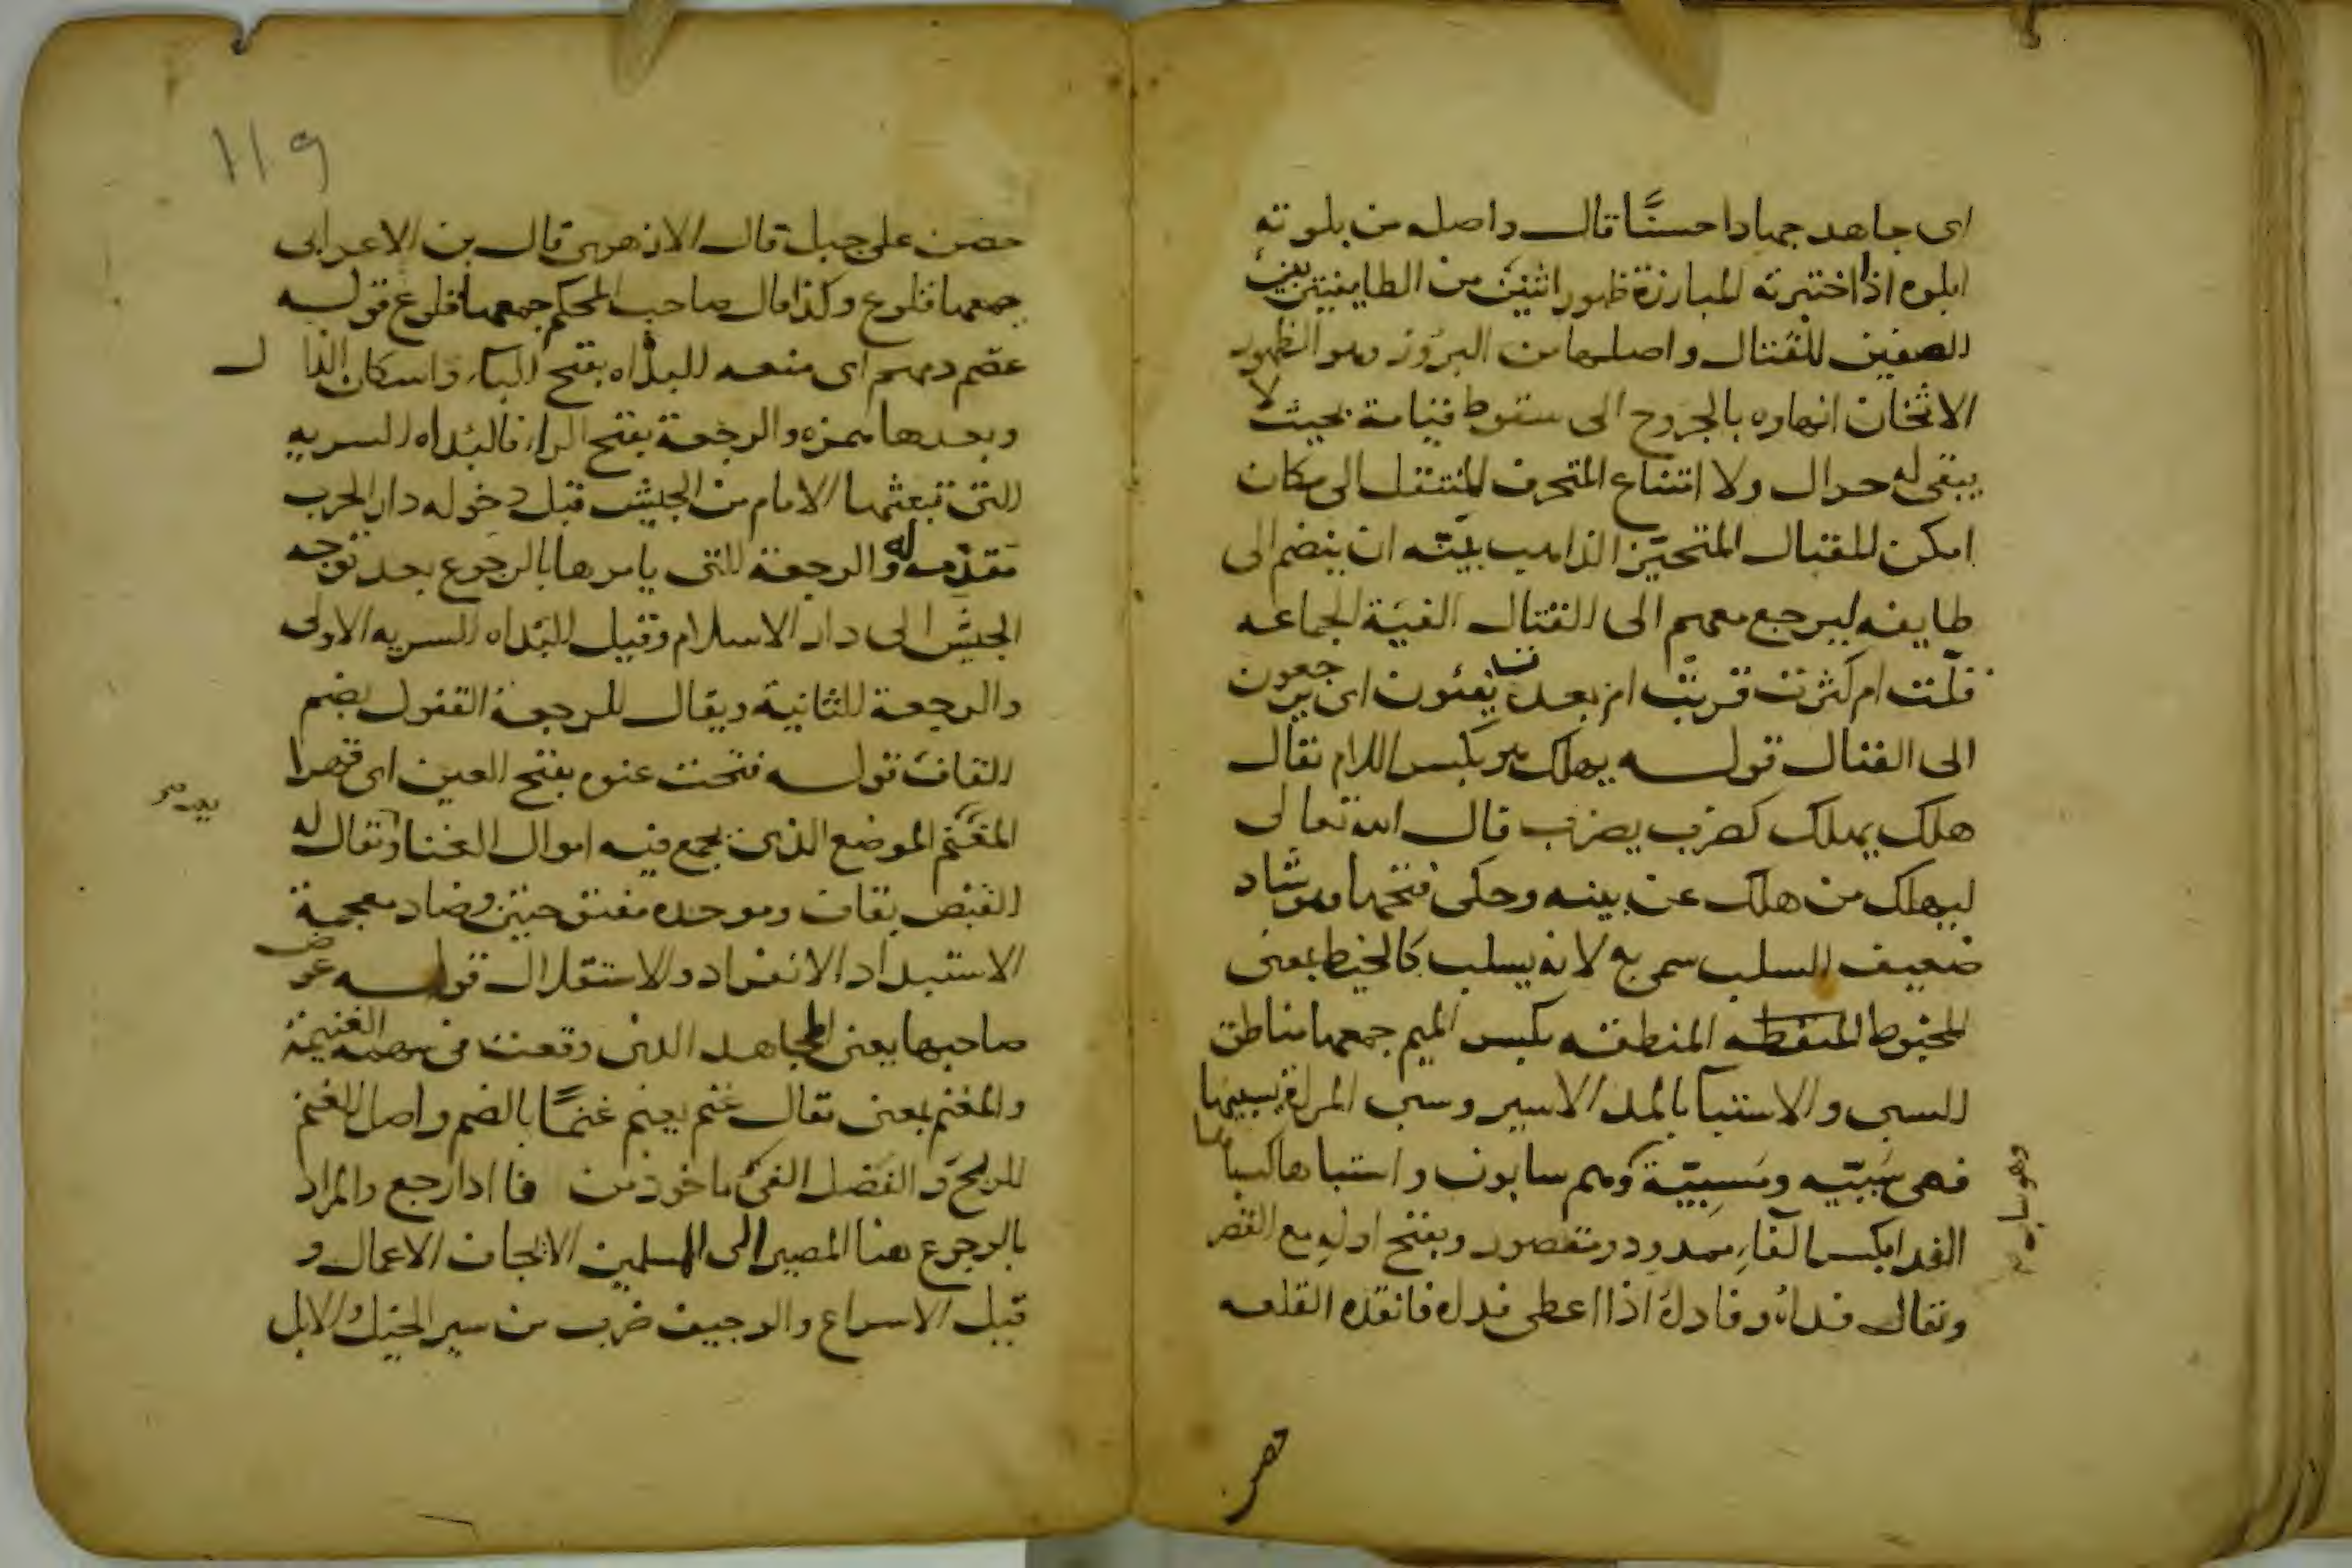 اى جاهد جهادا حسنًا قال واصله من بلوته
ابلوه اذا اختبرته المبارزة ظهور اثنين من الطايفتين بين
الصفين للقتال واصلها من البروز وهو الظهور
الاثخان انهاره بالجروح الى سقوط قيامة بحيث لا
يبقى له حراك ولا امتناع المتحرف المنتقل الى مكان
امكن للقتال المتحيّز الذاهب بنيته ان ينضم الى
طايفه ليرجع معهم الى القتال الفية الجماعه
قلّت ام كثرت قربت ام بعدت يفئون اى يرجعون
الى القتال قوله يهلك هو بكسر اللام يقال
هلك يهلك كضرب يضرب قال الله تعالى
ليهلك من هلك عن بينه وحكى فتحها وهو شاد
ضعيف السلب سمى به لانه يسلب كالخيط بمعنى
المخيوط المنطقه بكسر الميم جمعها مناطق
السبى والاستبا بالمد الاسير وسبى المراة يسبيها
فهى سَبيّه ومَسبِيّة وهم سابون واستباها كسباها
وهو سابه
الفدا بكسر الفاء ممدود ومقصور وبفتح اوله مع القصر
ويقال فداه وفاداه اذا اعطى فداه فانقذه القلعه
حصن
119
حصن على جبل قال الازهرى قال بن الاعرابى
جمعها قلوع وكذا قال صاحب المحكم جمعها قلوع قوله
عصم دمهم اى منعه البداه بفتح الباء واسكان الدال
وبعدها همزه والرجعة بفتح الراء فالبداه السريه
التى تبعثها الامام من الجيش قبل دخوله دار الحرب
مقدّمه له والرجعة التى يامرها بالرجوع بعد توجه
الجيش الى دار الاسلام وقيل البداه السريه الاولى
والرجعة الثانية ويقال للرجعة القفول بضم
القاف قوله فتحت عنوه بفتح العين اى قهرا
المغنم الموضع الذى تجمع فيه اموال الغنا ويقال له
القبض بقاف وموحده مفتوحتين وضاد معجمة
الاستبداد الانفراد والاستقلال قوله عوض
صاحبها يعنى المجاهد الذى وقعت فى سهمه الغنيمة
والمغنم بمعنى يقال غنم يغنم غنمًا بالضم واصل الغنم
الربح والفضل الفئ ماخوذ من فا ادا رجع والمراد
بالرجوع هنا المصير الى المسلمين الايجاف الاعمال و
قيل الاسراع والوجيف ضرب من سير الخيل والابل